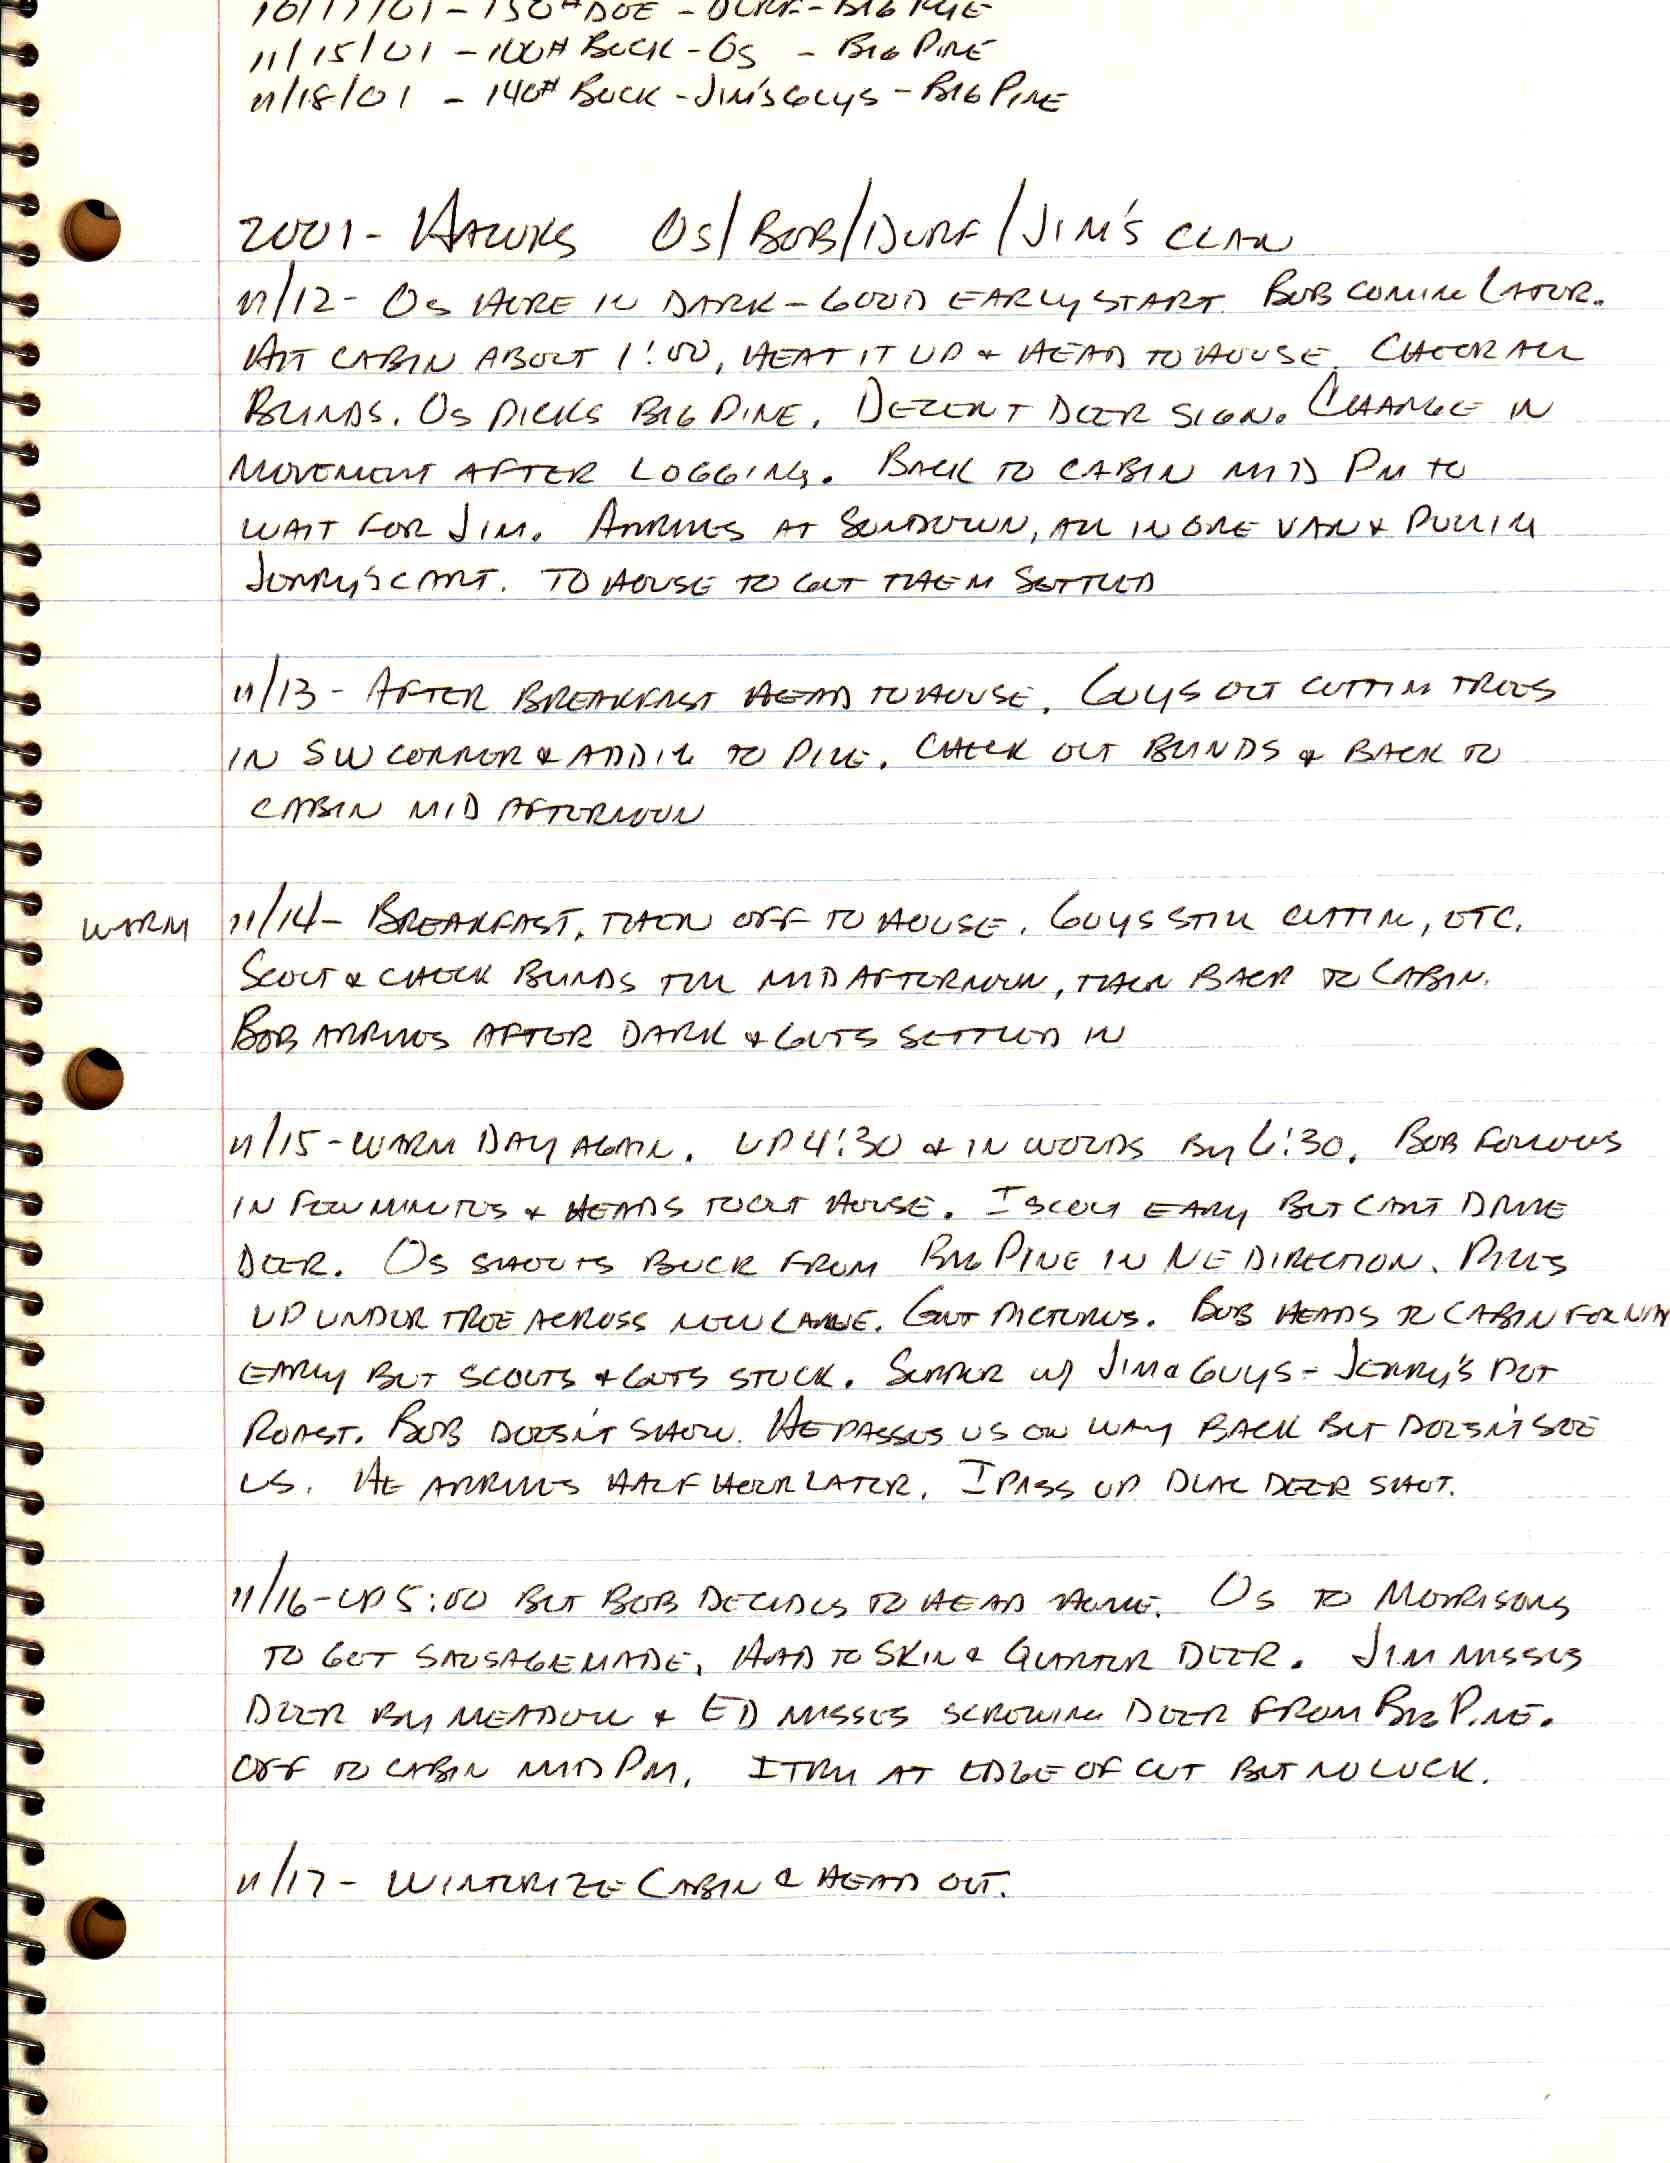 10/17/01 - 130# DOE - DURF - BIG PINE
11/15/01 - 100# BUCK - OS - BIG PINE
11/18/01 - 140# BUCK - JIM'S GUYS - BIG PINE
2001 - HAWKS OS/BOB/DURF/JIM'S CLAN
11/12 - OS HERE IN DARK - GOOD EARLY START. BOB COMIN LATER.
HIT CABIN ABOUT 1:00, HEAT IT UP & HEAD TO HOUSE. CHECK ALL
BLINDS. OS PICKS BIG PINE. DECENT DEER SIGN. CHANGE IN
MOVEMENT AFTER LOGGING. BACK TO CABIN MID PM TO
WAIT FOR JIM. ARRIVES AT SUNDOWN, ALL IN ONE VAN & PULLIN
JERRY'S CART. TO HOUSE TO GET THEM SETTLED
11/13 - AFTER BREAKFAST HEAD TO HOUSE. GUYS OUT CUTTIN TREES
IN SW CORNER & ADDIN TO PILE. CHECK OUT BLINDS & BACK TO
CABIN MID AFTERNOON
WARM 11/14 - BREAKFAST, THEN OFF TO HOUSE. GUYS STILL CUTTIN, ETC.
SCOUT & CHECK BLINDS TILL MID AFTERNOON, THEN BACK TO CABIN.
BOB ARRIVES AFTER DARK & GETS SETTLED IN
11/15 - WARM DAY AGAIN. UP 4:30 & IN WOODS BY 6:30. BOB FOLLOWS
IN FEW MINUTES & HEADS TO OUT HOUSE. I SCOUT EARLY BUT CAN'T DRIVE
DEER. OS SHOOTS BUCK FROM BIG PINE IN NE DIRECTION. PILES
UP UNDER TREE ACROSS NEW LANE. GOT PICTURES. BOB HEADS TO CABIN FOR NAP
EARLY BUT SCOUTS & GETS STUCK. SUPPER W/ JIM & GUYS - JERRY'S POT
ROAST. BOB DOESN'T SHOW. HE PASSES US ON WAY BACK BUT DOESN'T SEE
US. HE ARRIVES HALF HOUR LATER. I PASS UP DUAL DEER SHOT.
11/16 - UP 5:00 BUT BOB DECIDES TO HEAD HOME. OS TO MORRISONS
TO GET SAUSAGE MADE. HAD TO SKIN & QUARTER DEER. JIM MISSES
DEER BY MEADOW & ED MISSES SCREWING DEER FROM BIG PINE.
OFF TO CABIN MID PM. I TRY AT EDGE OF CUT BUT NO LUCK.
11/17 - WINTERIZE CABIN & HEAD OUT.